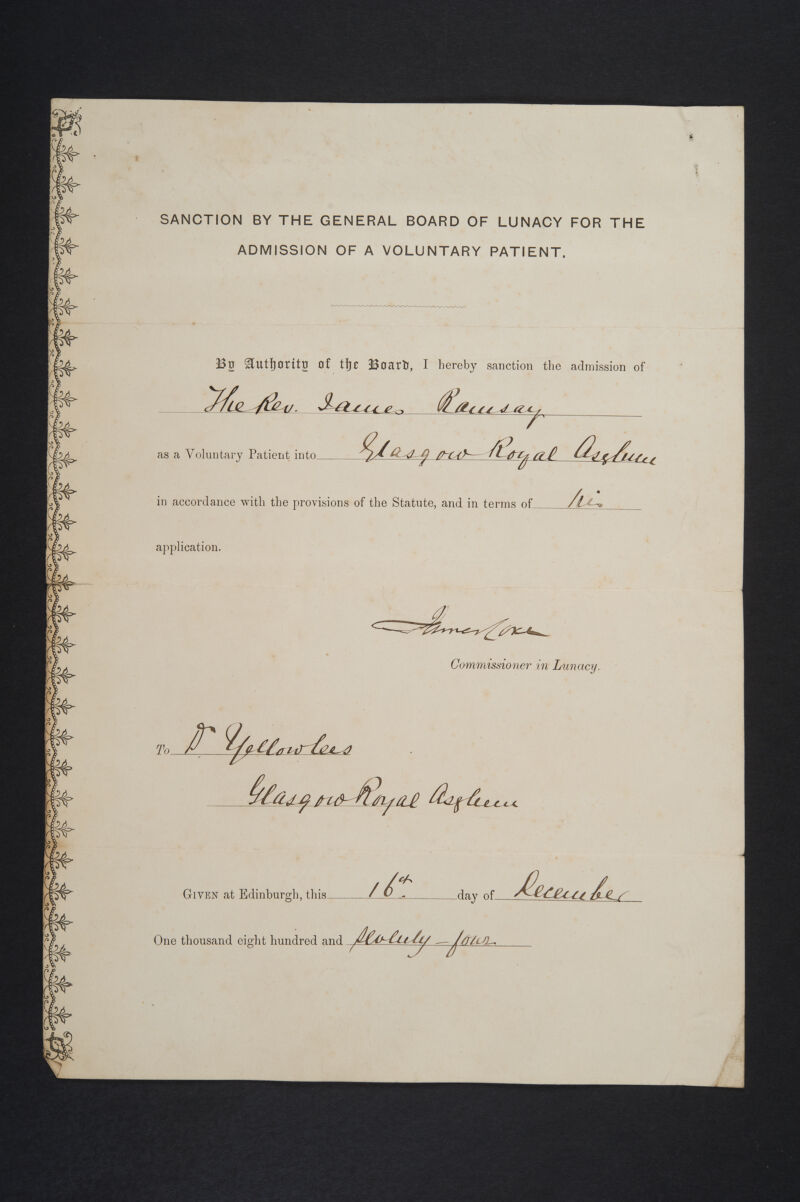 SANCTION BY THE GENERAL BOARD OF LUNACY FOR THE
ADMISSION OF A VOLUNTARY PATIENT.
By Authority of the Board, I hereby sanction the admission of
The Rev. James Ramsay
as a Voluntary Patient into Glasgow Royal Asylum
in accordance with the provisions of the Statute, and in terms of his
application.
James Coxe
Commissioner in Lunacy.
To Dr Yellowlees
Glasgow Royal Asylum
GIVEN at Edinburgh, this 16th. day of December
One thousand eight hundred and seventy-four.